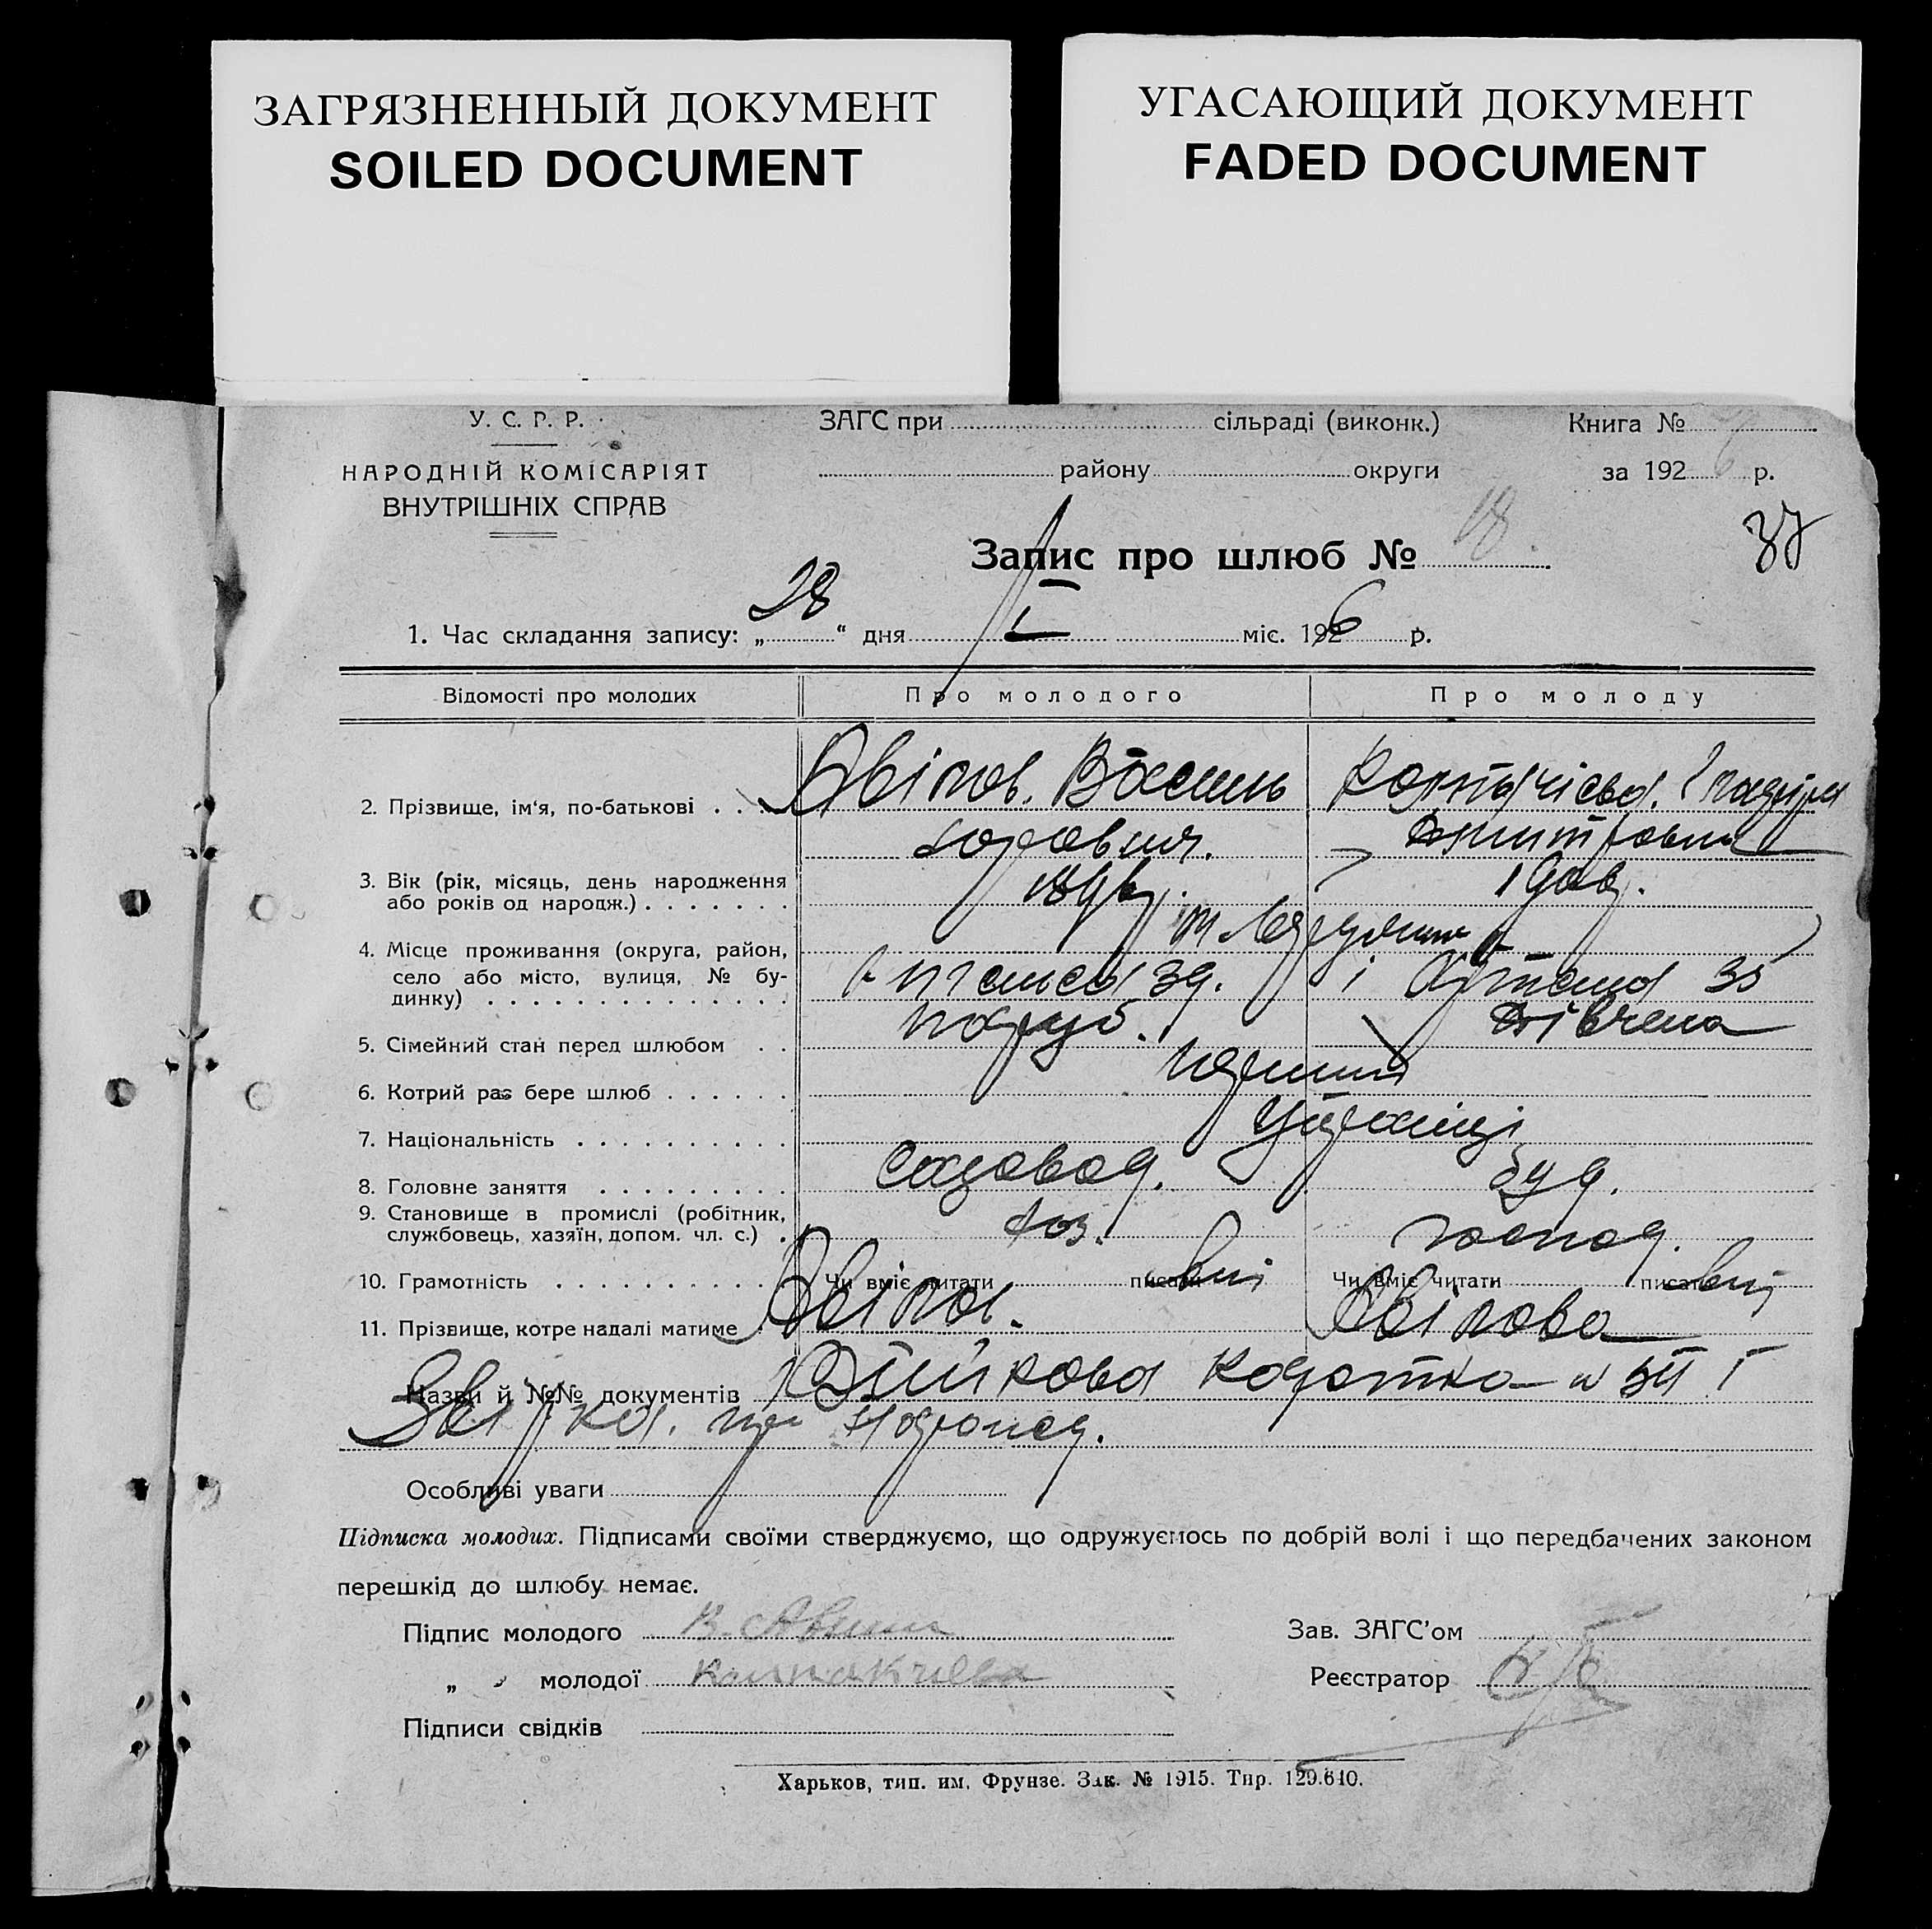 ЗАГРЯЗНЕННЫЙ ДОКУМЕНТ
SOILED DOCUMENT
УГАСАЮЩИЙ ДОКУМЕНТ
FADED DOCUMENT
У. С. Р. Р.
НАРОДНІЙ КОМІСАРІЯТ
ВНУТРІШНІХ СПРАВ
ЗАГС при сільраді (виконк.)
району округи
Книга №
за 1926 р.
Запис про шлюб № 18
37
1. Час складання запису: „28“ дня I міс. 1926 р.
Відомості про молодих Про молодого Про молоду
2. Прізвище, ім'я, по-батькові Авілов. Василь
3. Вік (рік, місяць, день народження
або років од народж.)
4. Місце проживання (округа, район,
село або місто, вулиця, № бу-
динку) 39. і Артема 35
5. Сімейний стан перед шлюбом паруб. дівчена
6. Котрий раз бере шлюб перший
7. Національність Українці
8. Головне заняття садовод.
9. Становище в промислі (робітник,
службовець, хазяїн, допом. чл. с.) хоз. господ.
10. Грамотність Чи вміє читати писати вмі Чи вміє читати писати вмі
11. Прізвище, котре надалі матиме Авілов. Авілова
Назви й №№ документів
Особливі уваги
Підписка молодих. Підписами своїми стверджуємо, що одружуємось по добрій волі і що передбачених законом
перешкід до шлюбу немає.
Підпис молодого В. Авилов
„ „ молодої
Підписи свідків
Зав. ЗАГС'ом
Реєстратор
Харьков, тип. им. Фрунзе. Зак. № 1915. Тир. 129.640.